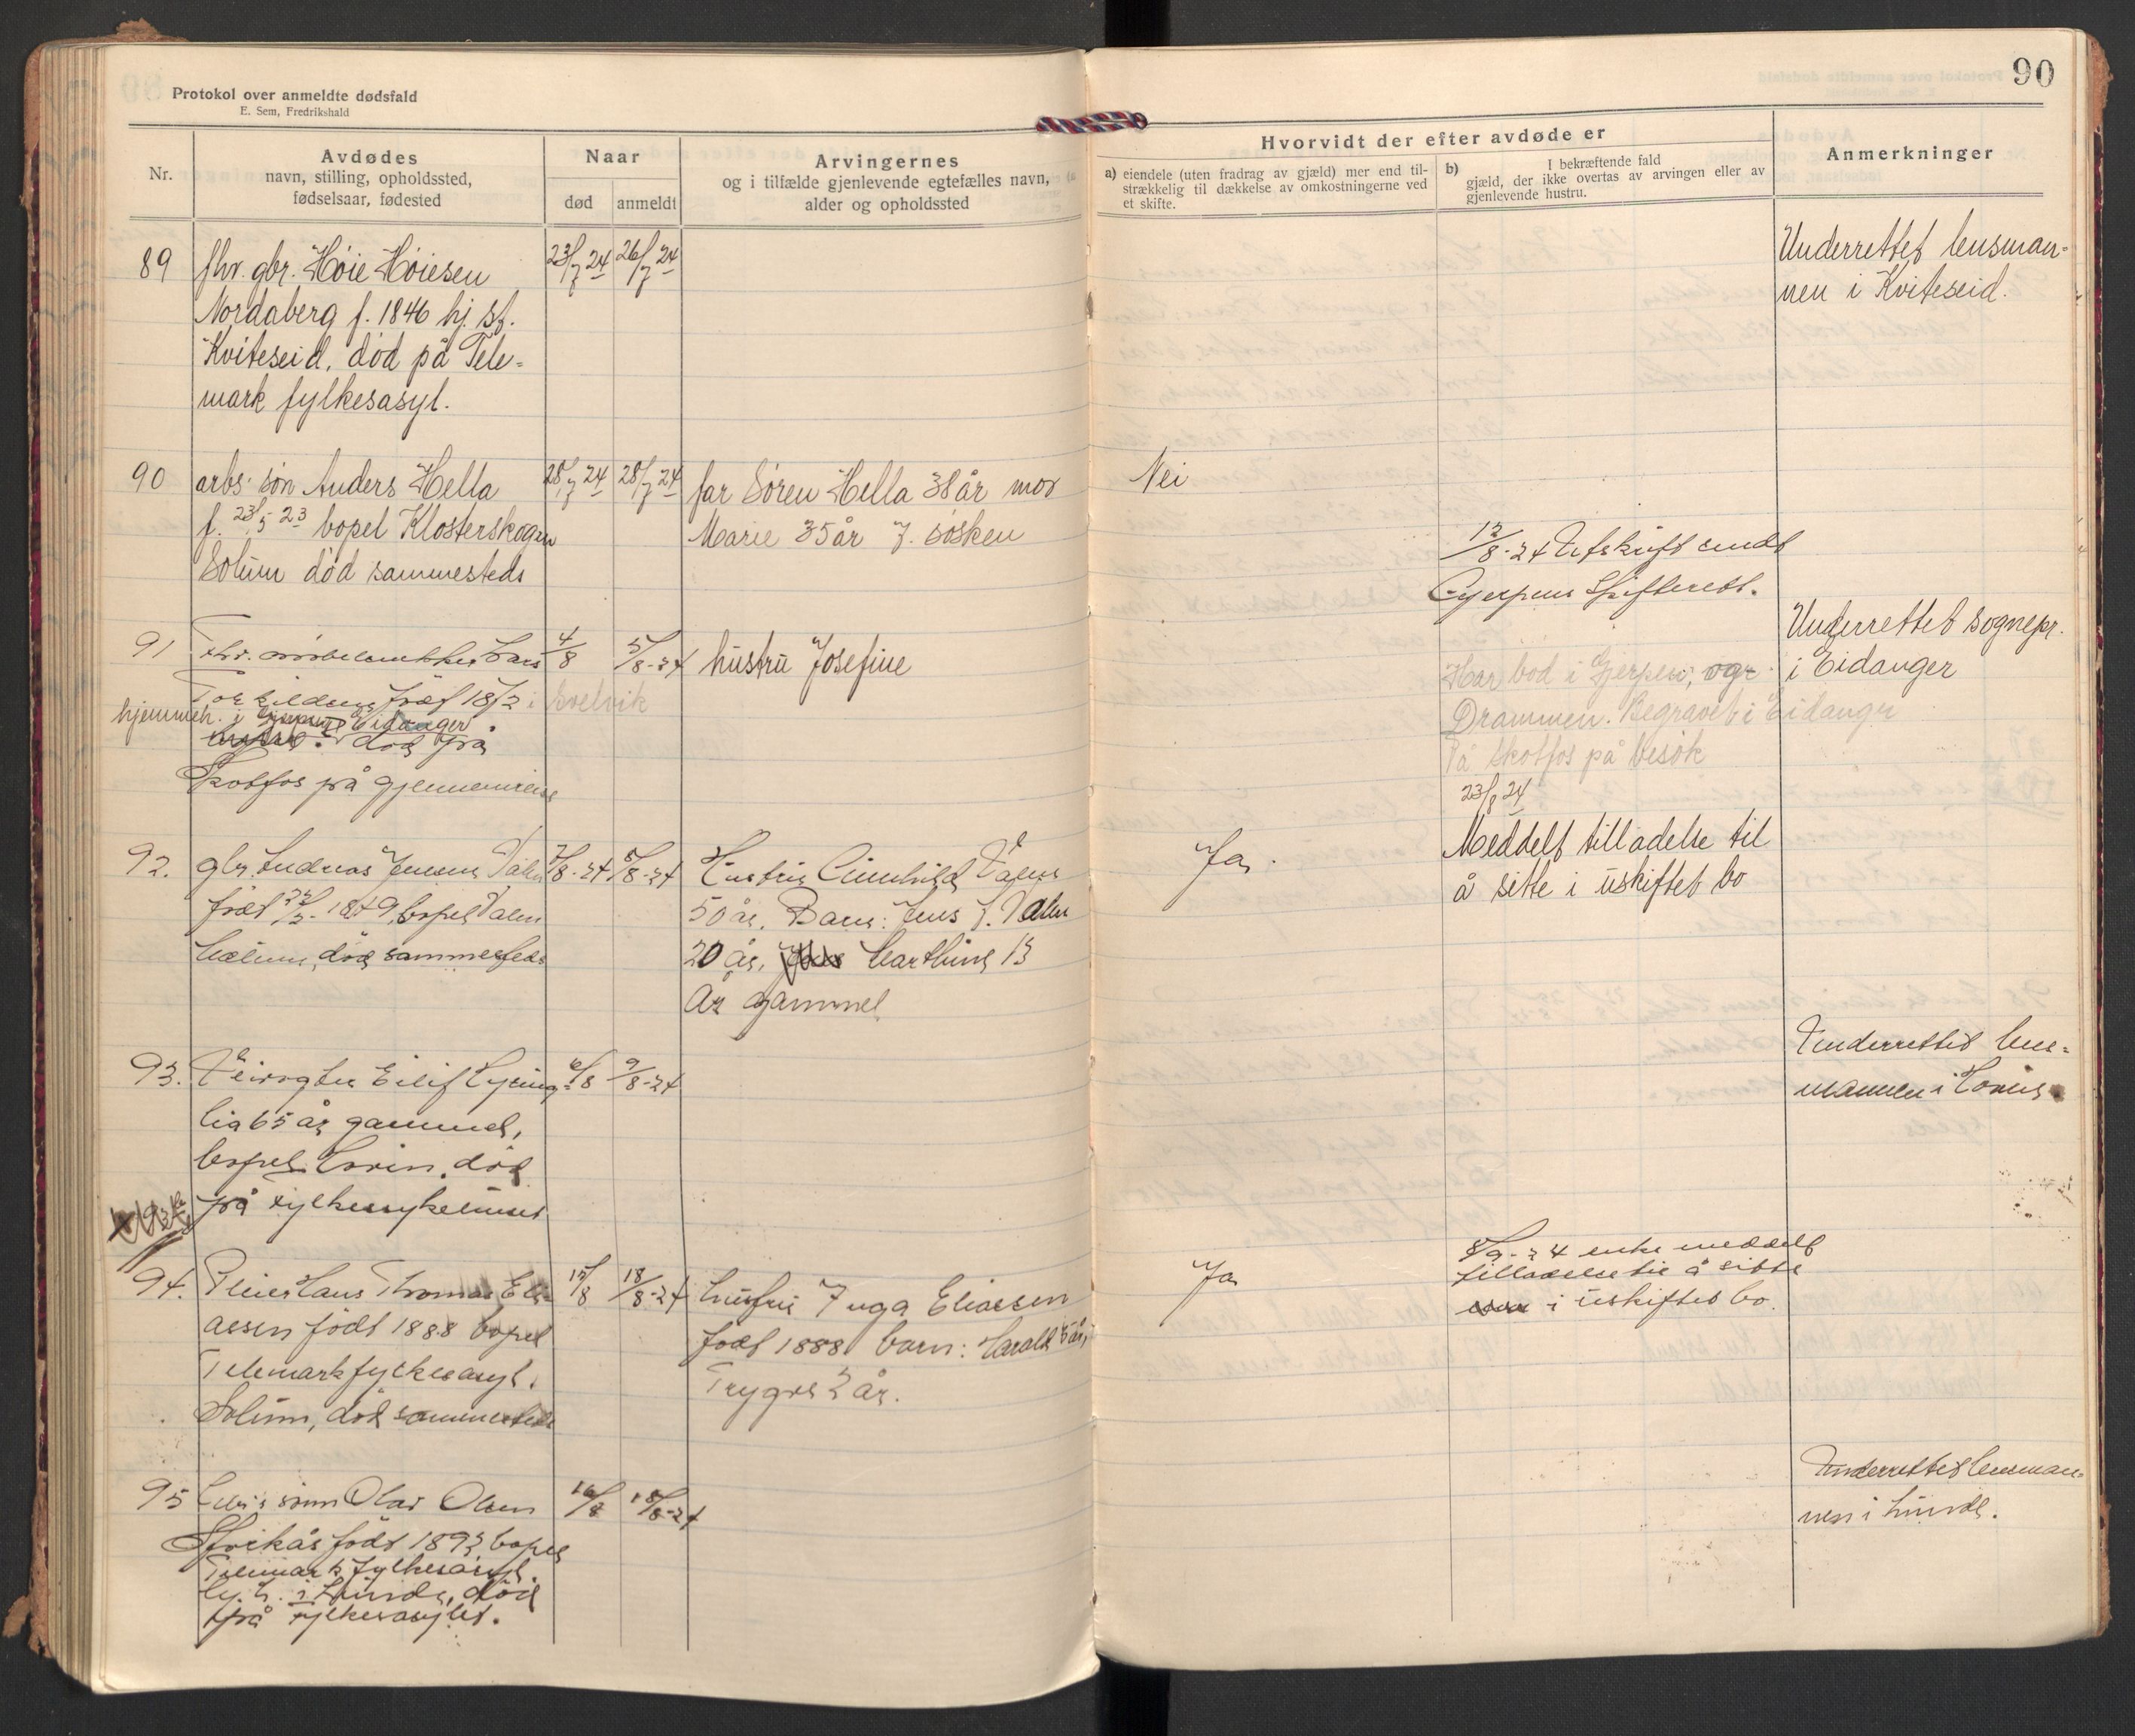 Protokol over anmeldte dødsfald
E. Sem, Fredrikshald
90
Nr.
Avdødes
navn, stilling, opholdssted,
fødselsaar, fødested
Naar
død
anmeldt
Arvingernes
og i tilfælde gjenlevende egtefælles navn,
alder og opholdssted
Hvorvidt der efter avdøde er
a) eiendele (uten fradrag av gjæld) mer end til-
strækkelig til dækkelse av omkostningerne ved
et skifte.
b) I bekræftende fald
gjæld, der ikke overtas av arvingen eller av
gjenlevende hustru.
Anmerkninger
89
fhv. gbr. Høie Høiesen
Nordaberg f. 1846 hj. st.
Kviteseid, død på Tele-
mark fylkesasyl.
23/7 24
26/7 24
Underrettet lensman-
nen i Kviteseid.
90
arbs. søn Anders Hella
f. 23/5 23 bopel Klosterskogen
Solum død sammesteds
28/7 24
28/7 24
far Søren Hella 38 år mor
Marie 35 år 7. søsken
Nei
12/8-24 Utskrift sendt
Gjerpens Skifterett.
91
Fhv. møbelsnekker Lars
Torkildsen født 1872 i Svelvik
hjemmeh. i Eidanger
død på
Skotfos på gjennemreise
4/8
5/8-24
hustru Josefine
Har bod i Gjerpen, og
Drammen. Begravet i Eidanger
På Skotfos på besøk
Underrettet sognepr.
i Eidanger
92.
gbr. Andreas Jensen Valen
født 1849 bopel Valen
Solum, død sammesteds
7/8-24
8/8-24
Hustru Gunhild Valen
50 år. Barn: Jens J. Valen
20 år, Marthine 13
år gammel
Ja
23/8 24
Meddelt tilladelse til
å sitte i uskiftet bo
93.
Veivogter Eilif Lysing-
lia 65 år gammel,
bopel Hovin, død
på Fylkessykehuset
6/8
9/8-24
Underrettet lens-
mannen i Hovin
94.
Pleier Hans Thomas Eli-
assen født 1888 bopel
Telemark fylkesasyl.
Solum, død sammesteds
15/8
18/8-24
hustru Inga Eliassen
født 1888 barn: Harald 5 år,
Trygve 2 år.
Ja
8/9-24 enke meddelt
tilladelse til å sitte
i uskiftet bo.
95
søn Olav Olsen
Strikås født 1893 bopel
Telemark fylkesasyl.
hj. h. i Lunde, død
på fylkesasylet.
16/8
18/8-24
Underrettet lensman-
nen i Lunde.